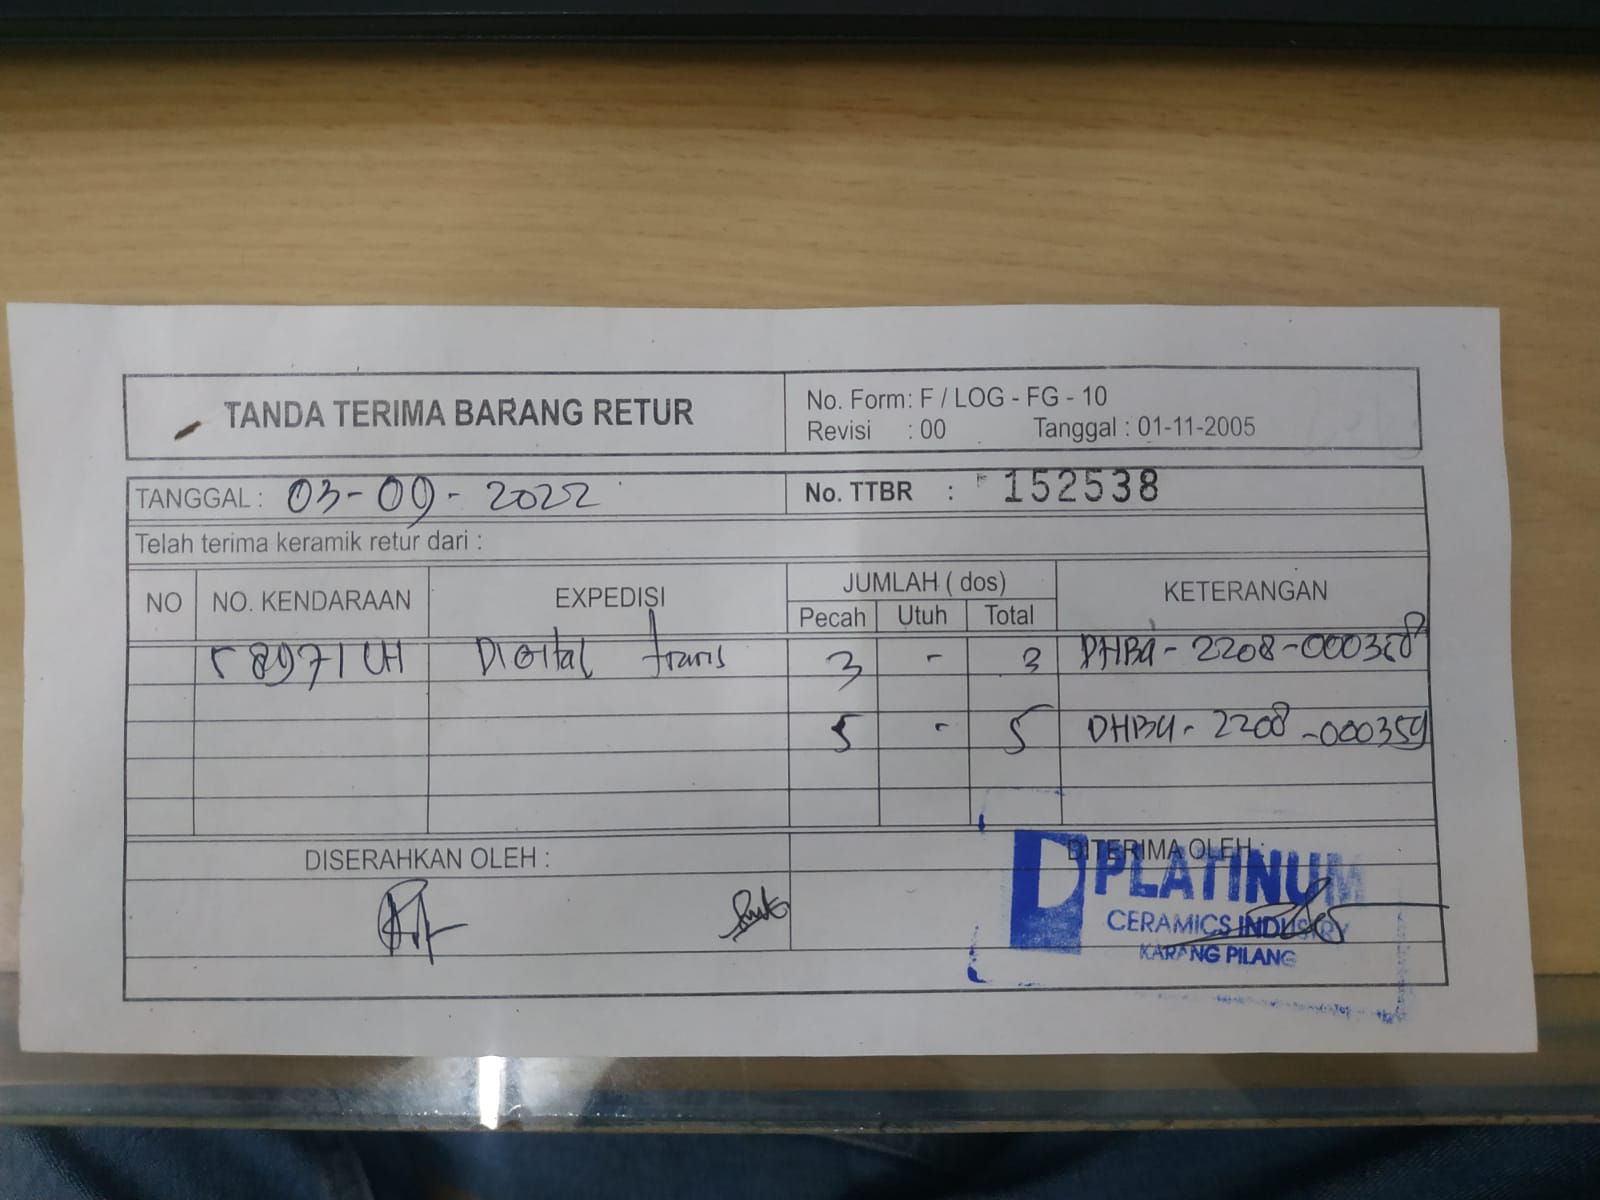 TANDA TERIMA BARANG RETUR
No. Form: F / LOG - FG - 10
Revisi : 00 Tanggal : 01-11-2005
TANGGAL : 03-09-2022 No. TTBR : 152538
Telah terima keramik retur dari :
NO NO. KENDARAAN EXPEDISI JUMLAH ( dos) KETERANGAN
Pecah Utuh Total
8971 UH Digital trans 3 - 3
5 - 5 DHBG - 2208 - 000359
DISERAHKAN OLEH : DITERIMA OLEH :
PLATINUM
CERAMICS INDUSTRY
KARANG PILANG